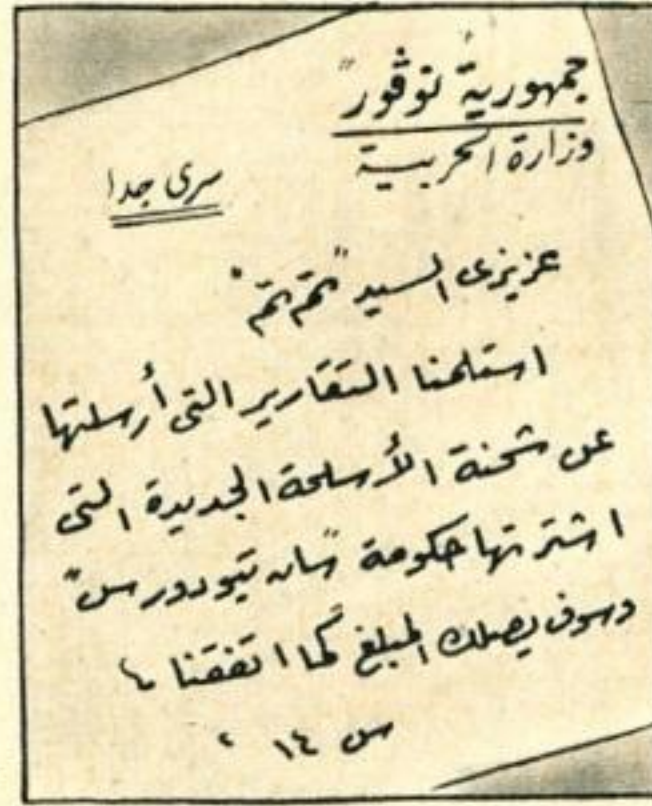 جمهورية "نوڤور"
وزارة الحربية
سرى جدا
عزيزى السيد "تم تم"
استلمنا التقارير التى أرسلتها
عن شحنة الأسلحة الجديدة التى
اشترتها حكومة "سان تيودورس"
وسوف يصلك المبلغ كما اتفقنا
س ١٤